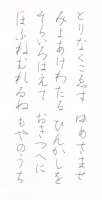 とりなくこゑす ゆめさませ
みよあけわたる ひんかしを
そらいろはえて おきつへに
ほふねむれゐぬ もやのうち